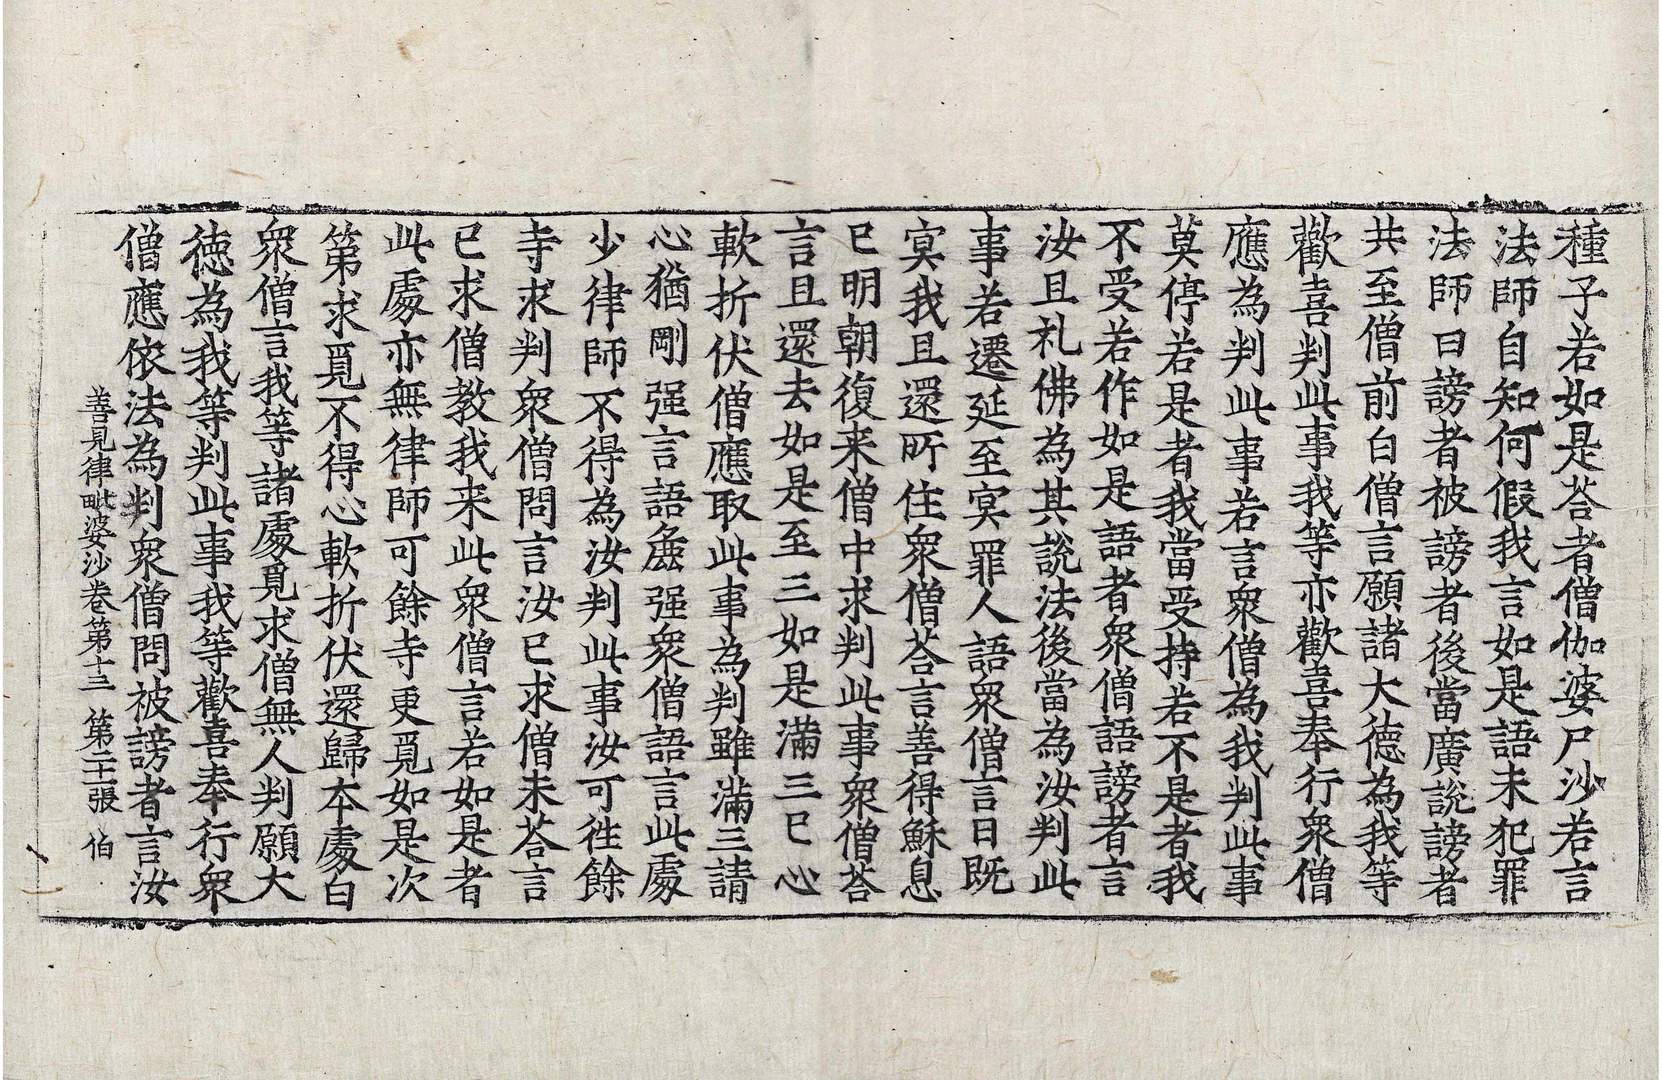 種子若如是荅者僧伽婆尸沙若言
法師自知何假我言如是語未犯罪
法師曰謗者被謗者後當廣說謗者
共至僧前白僧言願諸大德為我等
歡喜判此事我等亦歡喜奉行衆僧
應為判此事若言衆僧為我判此事
莫停若是者我當受持若不是者我
不受若作如是語者衆僧語謗者言
汝且礼佛為其說法後當為汝判此
事若遷延至冥罪人語衆僧言日既
冥我且還所住衆僧荅言善得穌息
已明朝復来僧中求判此事衆僧荅
言且還去如是至三如是滿三已心
軟折伏僧應取此事為判雖滿三請
心猶剛强言語麁强衆僧語言此處
少律師不得為汝判此事汝可徃餘
寺求判衆僧問言汝已求僧未荅言
已求僧教我来此衆僧言若如是者
此處亦無律師可餘寺更覓如是次
第求覓不得心軟折伏還歸本處白
衆僧言我等諸處覓求僧無人判願大
德為我等判此事我等歡喜奉行衆
僧應依法為判衆僧問被謗者言汝
善見律毗婆沙卷第十三　第二十張　伯